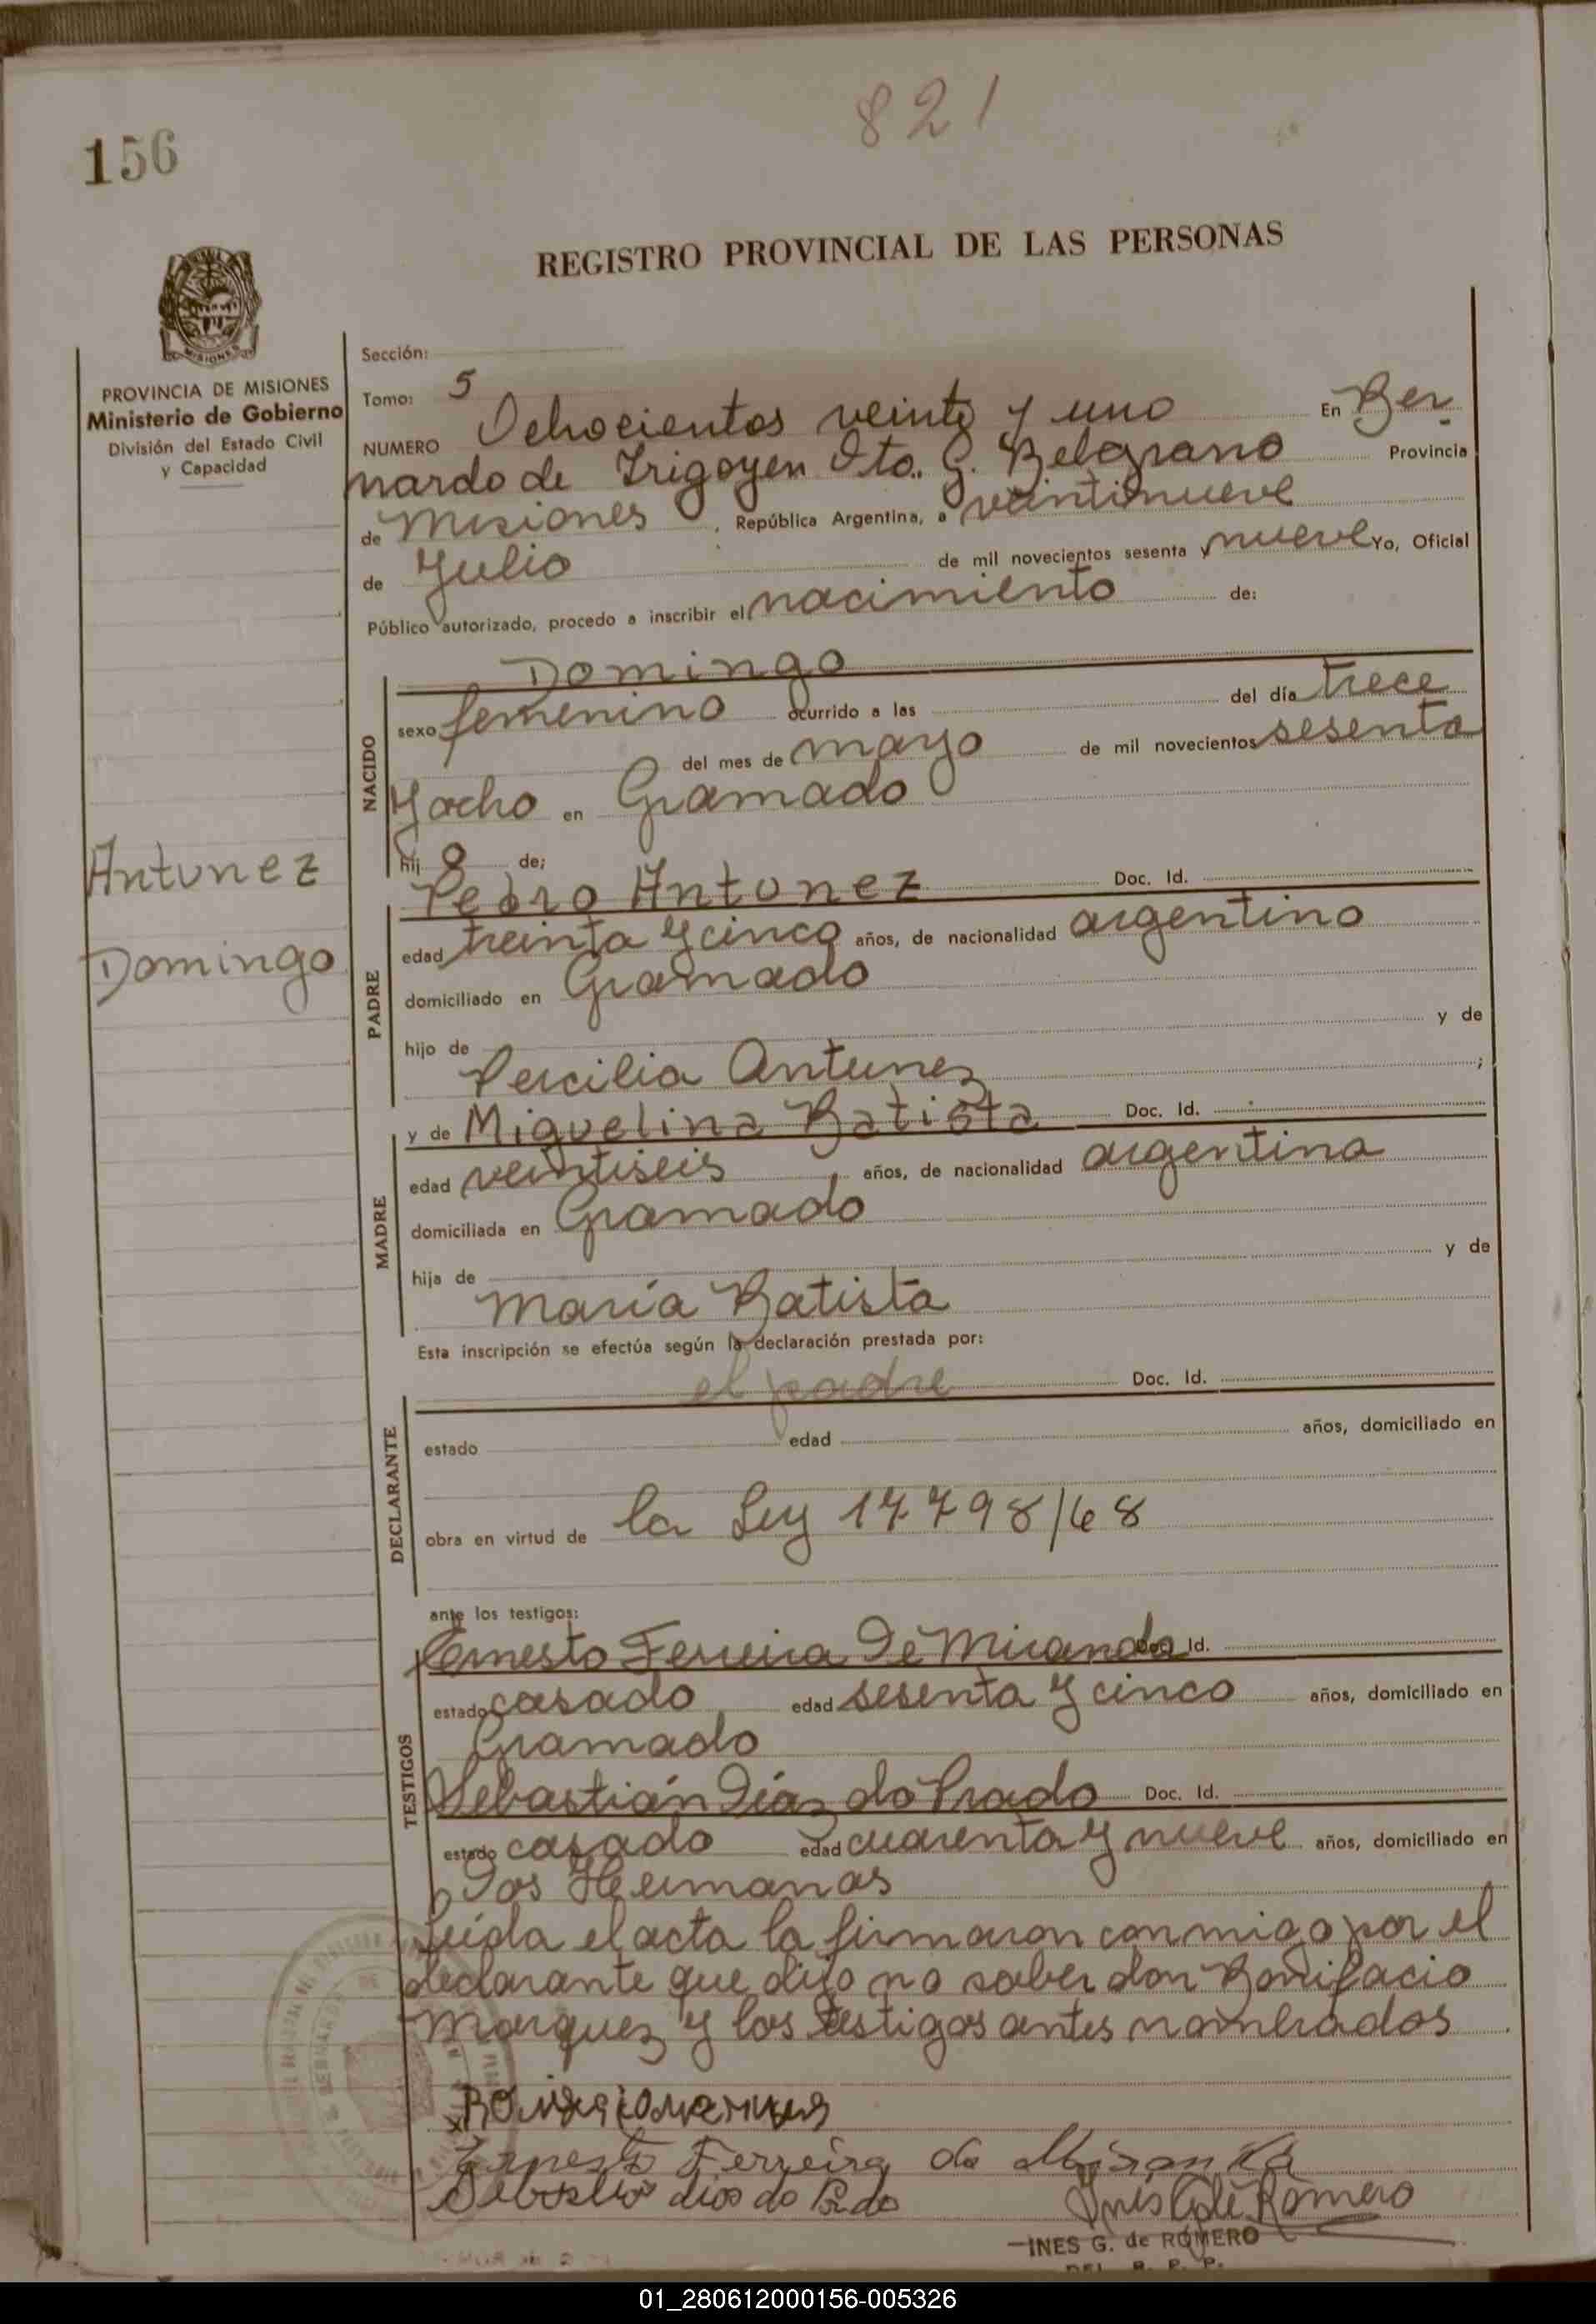 821
156
REGISTRO PROVINCIAL DE LAS PERSONAS
MISIONES
PROVINCIA DE MISIONES
Ministerio de Gobierno
División del Estado Civil
y Capacidad
Sección:
Tomo: 5
NUMERO Ochocientos veinte y uno En Ber
nardo de Irigoyen Dto. G. Belgrano Provincia
de Misiones, República Argentina, a veintinueve
de Julio de mil novecientos sesenta y nueve Yo, Oficial
Público autorizado, procedo a inscribir el nacimiento de:
NACIDO
Domingo
sexo femenino ocurrido a las del día trece
del mes de mayo de mil novecientos sesenta
y ocho en Gramado
hij o de;
Antunez
Domingo
PADRE
Pedro Antunez Doc. Id.
edad treinta y cinco años, de nacionalidad argentino
domiciliado en Gramado
hijo de y de
Percilia Antunez ;
MADRE
y de Miguelina Batista Doc. Id.
edad veintiseis años, de nacionalidad argentina
domiciliada en Gramado
hija de y de
María Batista
Esta inscripción se efectúa según la declaración prestada por:
DECLARANTE
el padre Doc. Id.
estado edad años, domiciliado en
obra en virtud de la Ley 17798/68
ante los testigos:
TESTIGOS
Ernesto Ferreira De Miranda Doc. Id.
estado casado edad sesenta y cinco años, domiciliado en
Gramado
Sebastián Díaz do Prado Doc. Id.
estado casado edad cuarenta y nueve años, domiciliado en
Dos Hermanas
Leída el acta la firmaron conmigo por el
declarante que dijo no saber don Bonifacio
Marquez y los testigos antes nombrados
Ernesto Ferreira de Miranda
dias do Prado
Inés G de Romero
INES G. de ROMERO
DEL. R. P. P.
01_280612000156-005326